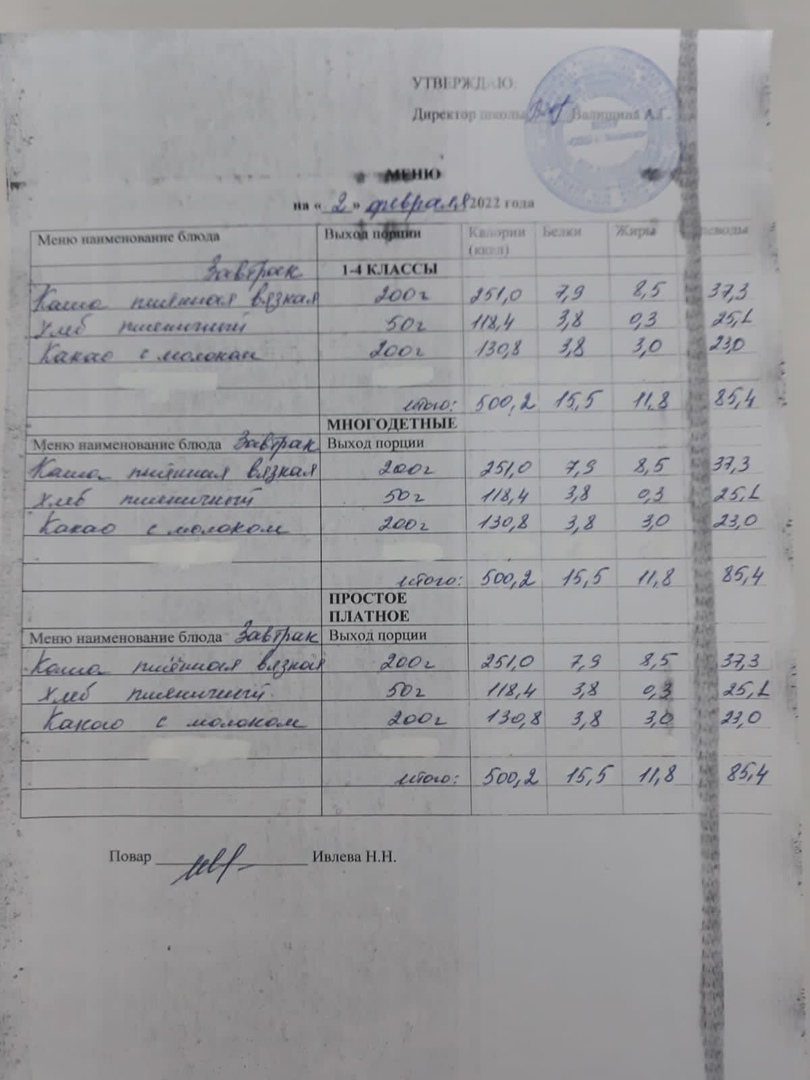 УТВЕРЖДАЮ:
Директор школы Валишина А.Г.
МЕНЮ
на « 2 » февраля 2022 года
Меню наименование блюда Выход порции Калории (ккал) Белки Жиры
Завтрак 1-4 КЛАССЫ
Каша пшённая вязкая 200г 251,0 7,9 8,5 37,3
Хлеб пшеничный 50г 118,4 3,8 0,3 25,1
Какао с молоком 200г 130,8 3,8 3,0 23,0
итого: 500,2 15,5 11,8 85,4
МНОГОДЕТНЫЕ
Меню наименование блюда Завтрак Выход порции
Каша пшённая вязкая 200г 251,0 7,9 8,5 37,3
Хлеб пшеничный 50г 118,4 3,8 0,3 25,1
Какао с молоком 200г 130,8 3,8 3,0 23,0
итого: 500,2 15,5 11,8 85,4
ПРОСТОЕ
ПЛАТНОЕ
Меню наименование блюда Завтрак Выход порции
Каша пшённая вязкая 200г 251,0 7,9 8,5 37,3
Хлеб пшеничный 50г 118,4 3,8 0,3 25,1
Какао с молоком 200г 130,8 3,8 3,0 23,0
итого: 500,2 15,5 11,8 85,4
Повар Ивлева Н.Н.